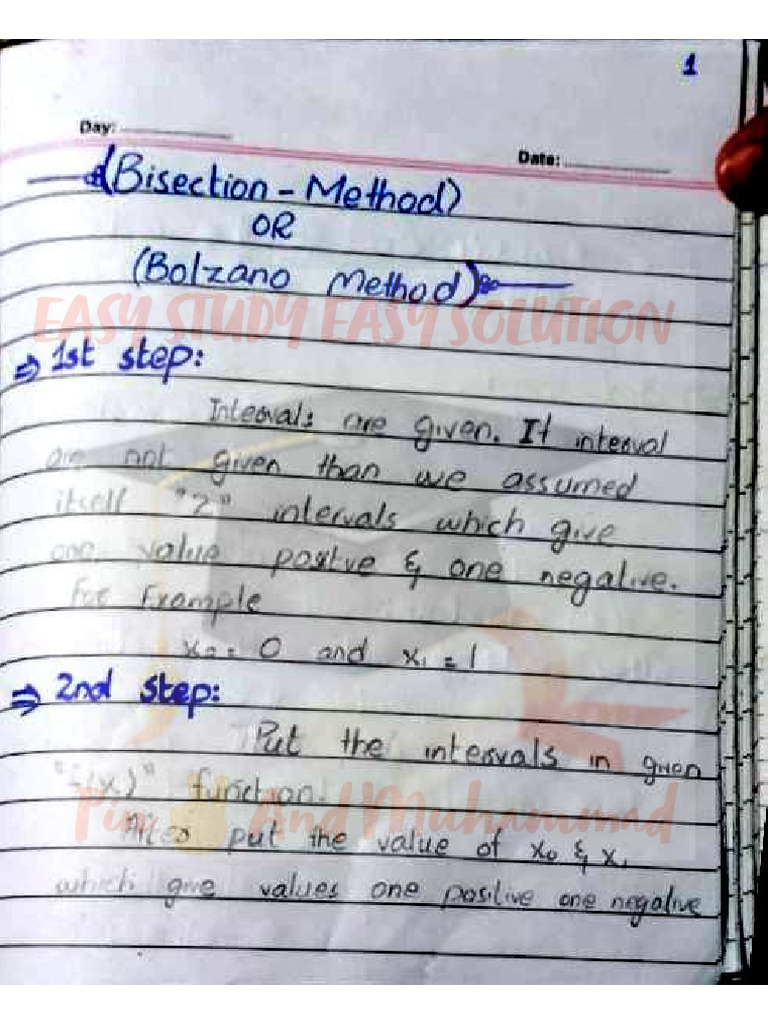 1
Day:
Date:
(Bisection - Method)
OR
(Bolzano Method)
EASY STUDY EASY SOLUTION
⇒ 1st step:
Intervals are given. If interval
are not given than we assumed
itself "2" intervals which give
one value postive & one negative.
For Example
x₀ = 0 and x₁ = 1
⇒ 2nd step:
Put the intervals in given
"f(x)" function.
And Muhammad
After put the value of x₀ & x₁
which give values one positive one negative